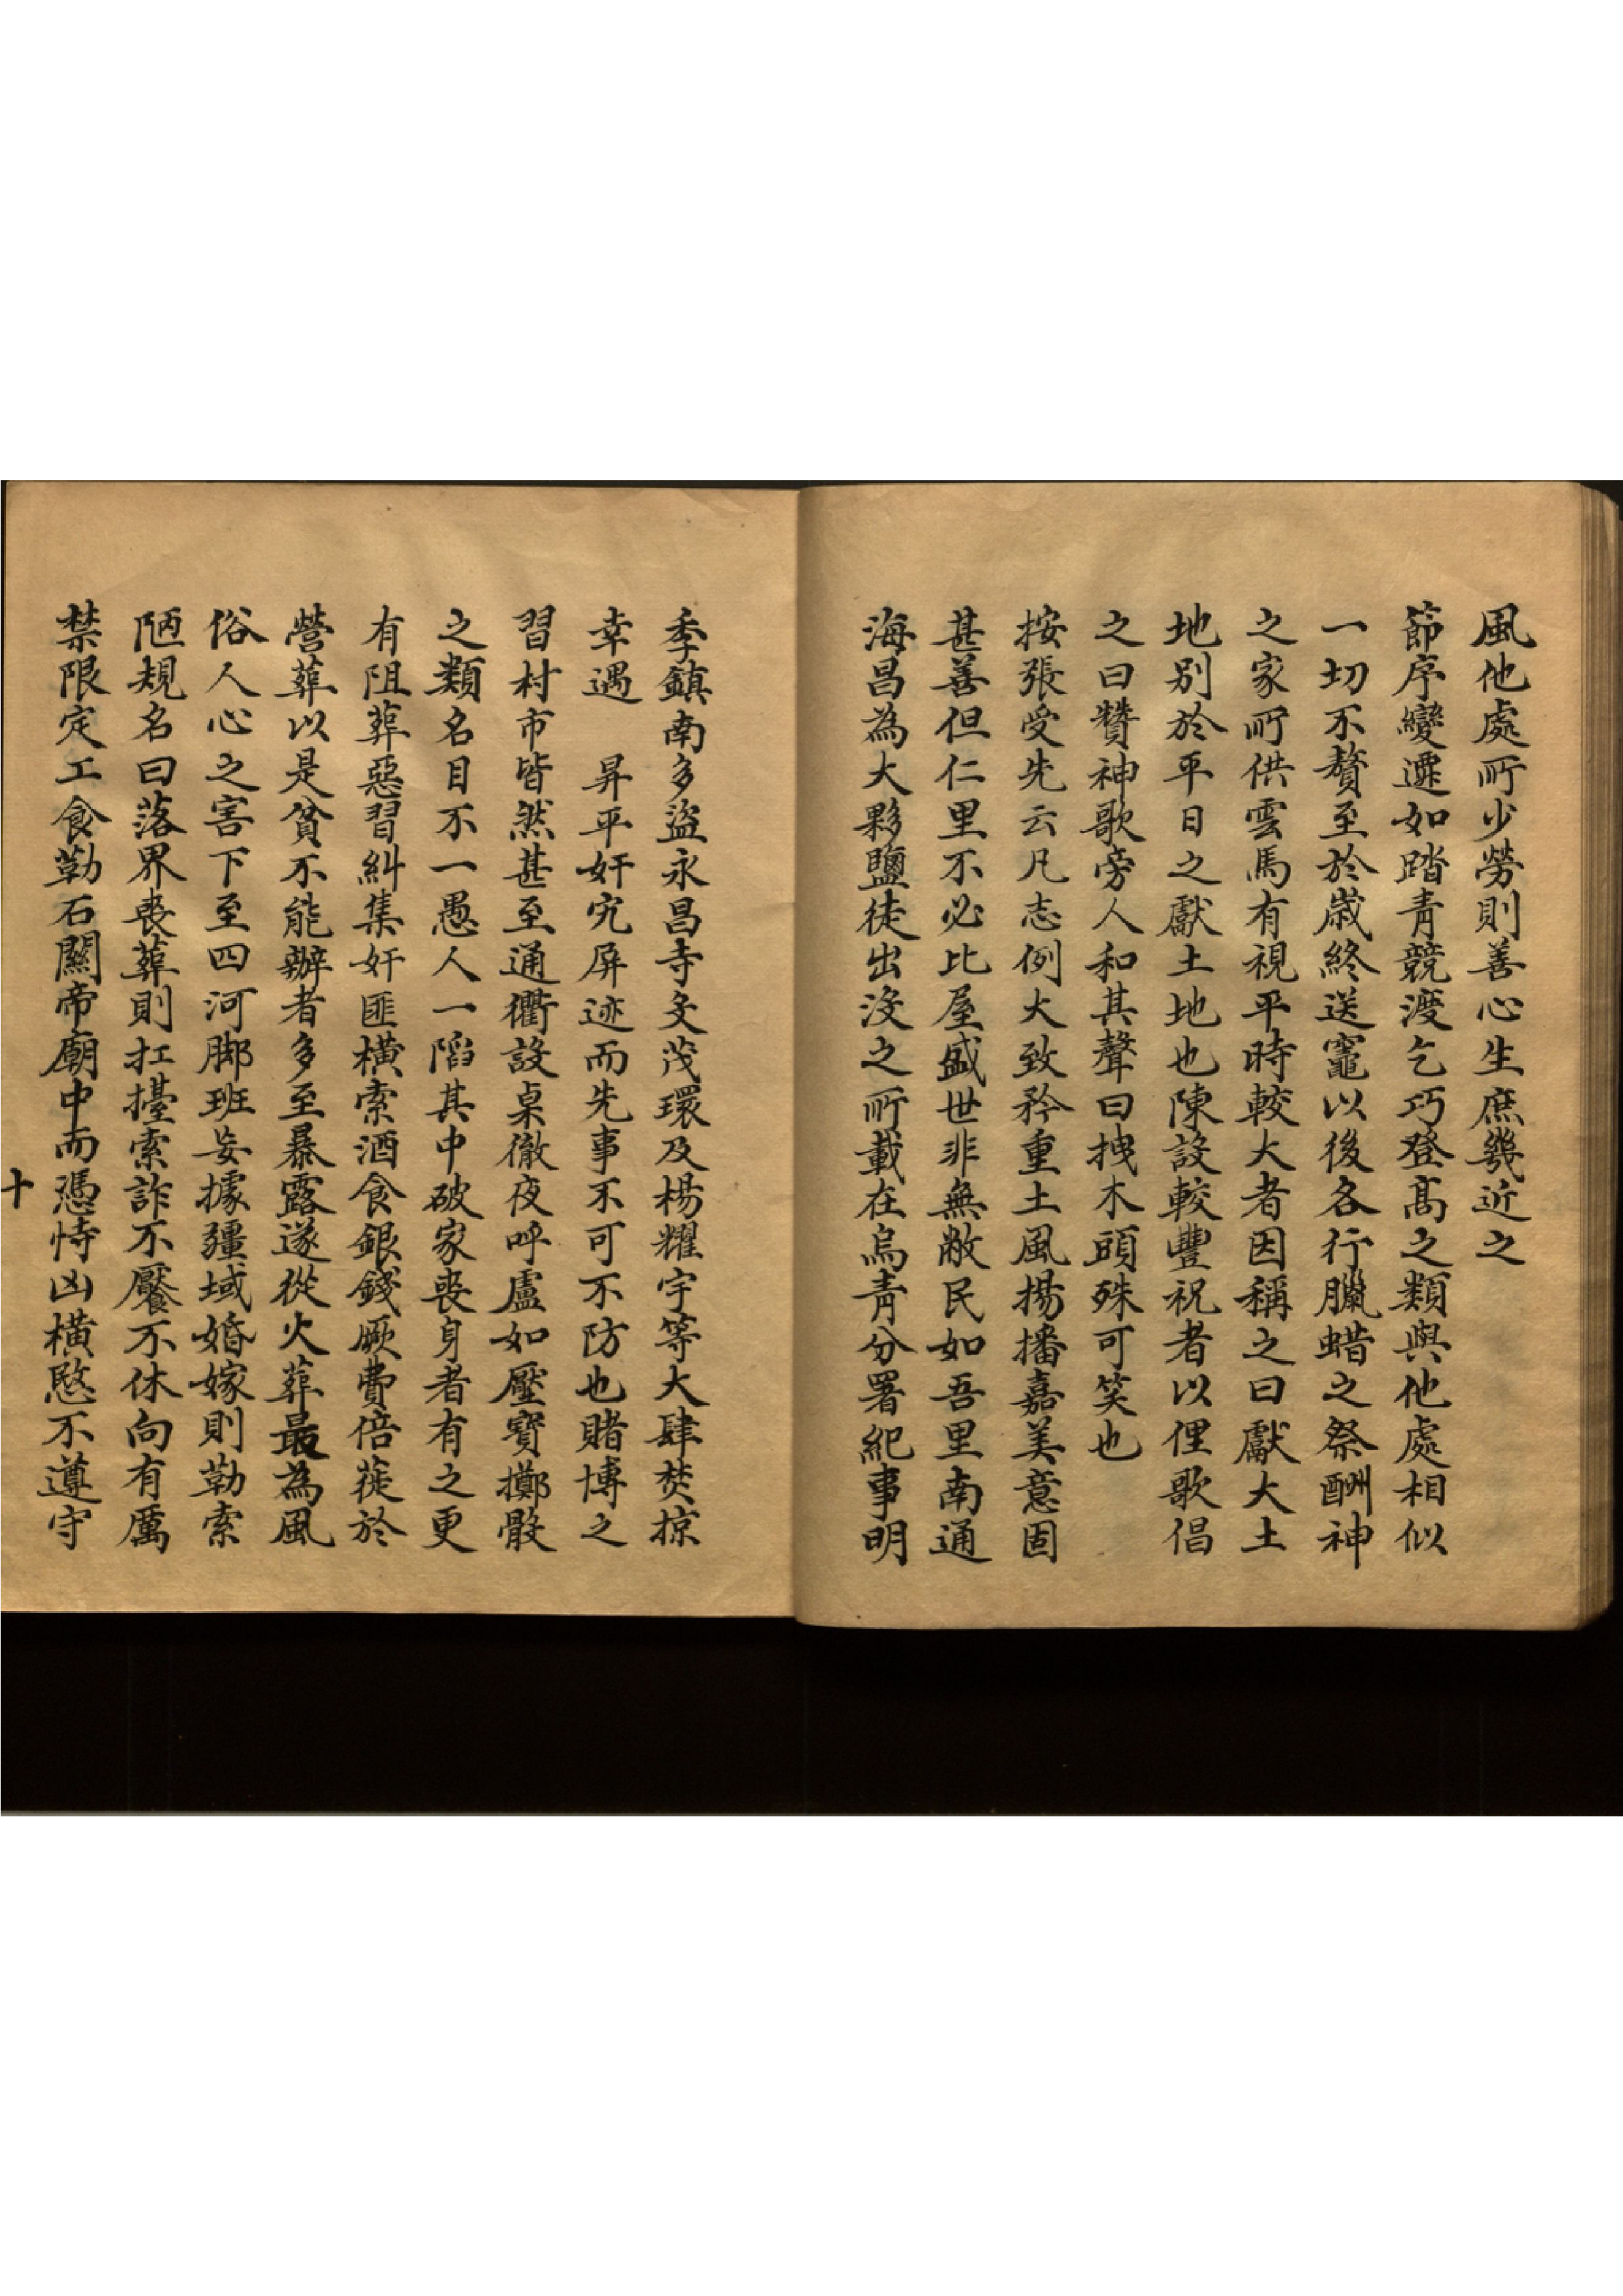 風他處所少勞則善心生庶幾近之
節序變遷如踏青競渡乞巧登高之類與他處相似
一切不贅至於歲終送竈以後各行臘蜡之祭酬神
之家所供雲馬有視平時較大者因稱之曰獻大土
地别於平日之獻土地也陳設較豐祝者以俚歌倡
之曰贊神歌旁人和其聲曰拽木頭殊可笑也
按張受先云凡志例大致矜重土風揚播嘉美意固
甚善但仁里不必比屋盛世非無敝民如吾里南通
海昌為大夥鹽徒出沒之所載在烏青分署紀事明
季鎮南多盜永昌寺文茂環及楊耀宇等大肆焚掠
幸遇　昇平奸宄屏迹而先事不可不防也賭博之
習村市皆然甚至通衢設桌徹夜呼盧如壓寶擲骰
之類名目不一愚人一䧟其中破家喪身者有之更
有阻葬惡習糾集奸匪橫索酒食銀錢厥費倍蓰於
營葬以是貧不能辦者多至暴露遂從火葬最為風
俗人心之害下至四河脚班妄據疆域婚嫁則勒索
陋規名曰落界喪葬則扛擡索詐不饜不休向有厲
禁限定工食勒石關帝廟中而憑恃凶橫愍不遵守
十